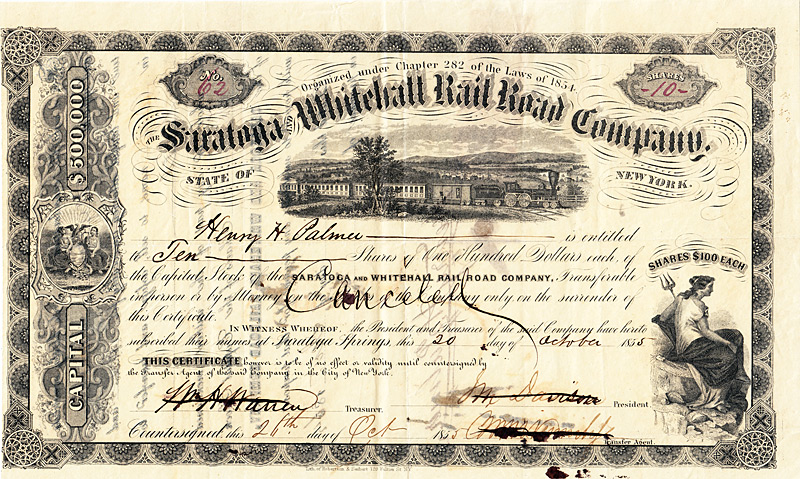 Organized under Chapter 282 of the Laws of 1854.
No. 62
SHARES -10-
THE Saratoga AND Whitehall Rail Road Company.
STATE OF NEW YORK.
$500,000
CAPITAL
Henry H. Palmer is entitled
to Ten Shares of One Hundred Dollars each, of
the Capital Stock of the SARATOGA AND WHITEHALL RAIL ROAD COMPANY, Transferable
in person or by Attorney on the only on the surrender of
this Certificate.
Canceled
SHARES $100 EACH
IN WITNESS WHEREOF, the President and Treasurer of the said Company have hereto
subscribed their names at Saratoga Springs, this 20 day of October 1855
THIS CERTIFICATE however is to be of no effect or validity until countersigned by
the Transfer Agent of the said Company in the City of New York.
Wm H Warren Treasurer. Davison President.
Countersigned, this 26th day of Oct 1855 Transfer Agent.
Lith. of Robertson & Seibert 121 Fulton St. N.Y.